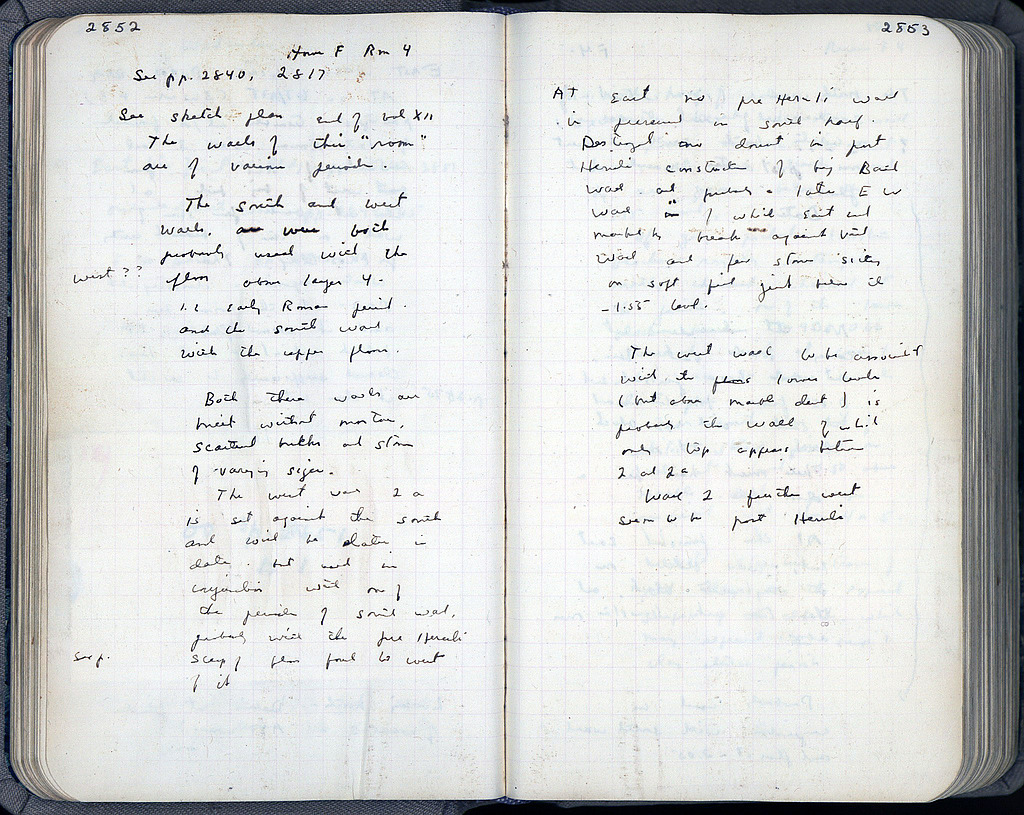 2852
House F Rm 4
See pp. 2840, 2817
See sketch plan end of vol XII
The walls of this "room"
are of various periods
The south and west
walls, are were both
probably used with the
west ??
floor above layer 4.
i.e. early Roman period.
and the south wall
with the upper floor.
Both these walls are
built without mortar,
scattered bricks and stones
of varying sizes.
The west wall 2 a
is set against the south
and will be later in
date. but used in
conjunction with one of
the periods of south wall,
probably with the pre Heruli
See p.
scrap of floor found to west
of it
2853
At East no pre Heruli wall
is preserved in south half.
Destroyed no doubt in post
Heruli construction of big East
wall and probably a later E W
wall of which east end
marked by break against East
wall and few stones sticking
on soft fill just below it
-1.55 level.
The west wall to be associated
with the floors lower levels
(but above marble dust) is
probably the wall of which
only top appears between
2 and 2a
Wall 2 further west
seems to be post Heruli